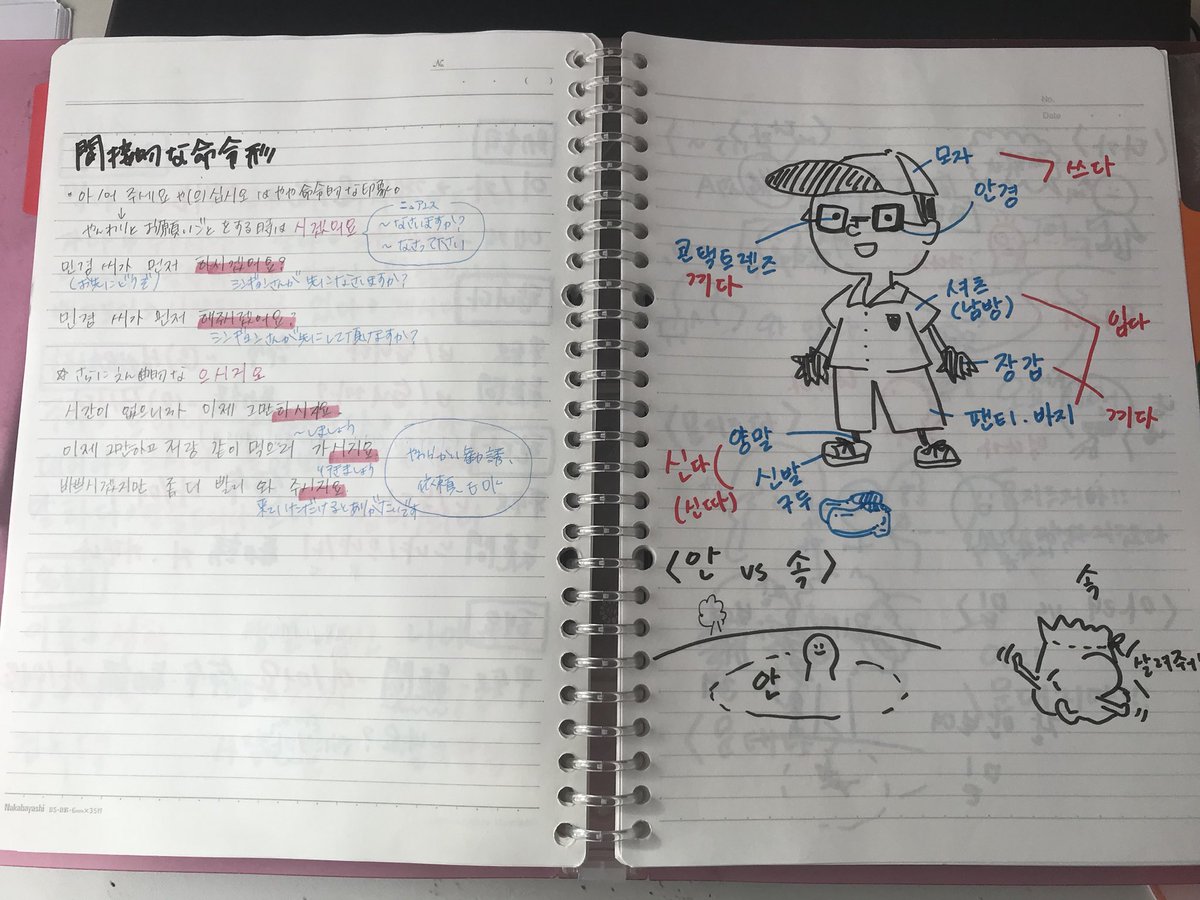 No.
間接的な命令形
・아/어 주세요 や(으)십시오 はやや命令的な印象。
↓
やんわりと お願いごと をする時は 시겠어요
ニュアンス
〜なさいますか?
〜なさって下さい
민경 씨가 먼저 하시겠어요?
(お先にどうぞ) ミンギョンさんが 先になさいますか?
민경 씨가 먼저 해주시겠어요?
ミンギョンさんが先にして頂けますか?
☆ さらにえん曲的な 으시지요
시간이 없으니까 이제 그만하시지요
〜しましょう
이제 그만하고 저랑 같이 먹으러 가시지요
行きましょう
바쁘시겠지만 좀 더 빨리 와 주시지요
来ていただけるとありがたいです
やわらかい勧誘、
依頼、
Nakabayashi
No.
Date
모자
쓰다
안경
콘택트렌즈
끼다
셔츠
(남방)
입다
장갑
팬티·바지
끼다
양말
신다
(신따)
신발
구두
〈안 vs 속〉
안
속
살려주